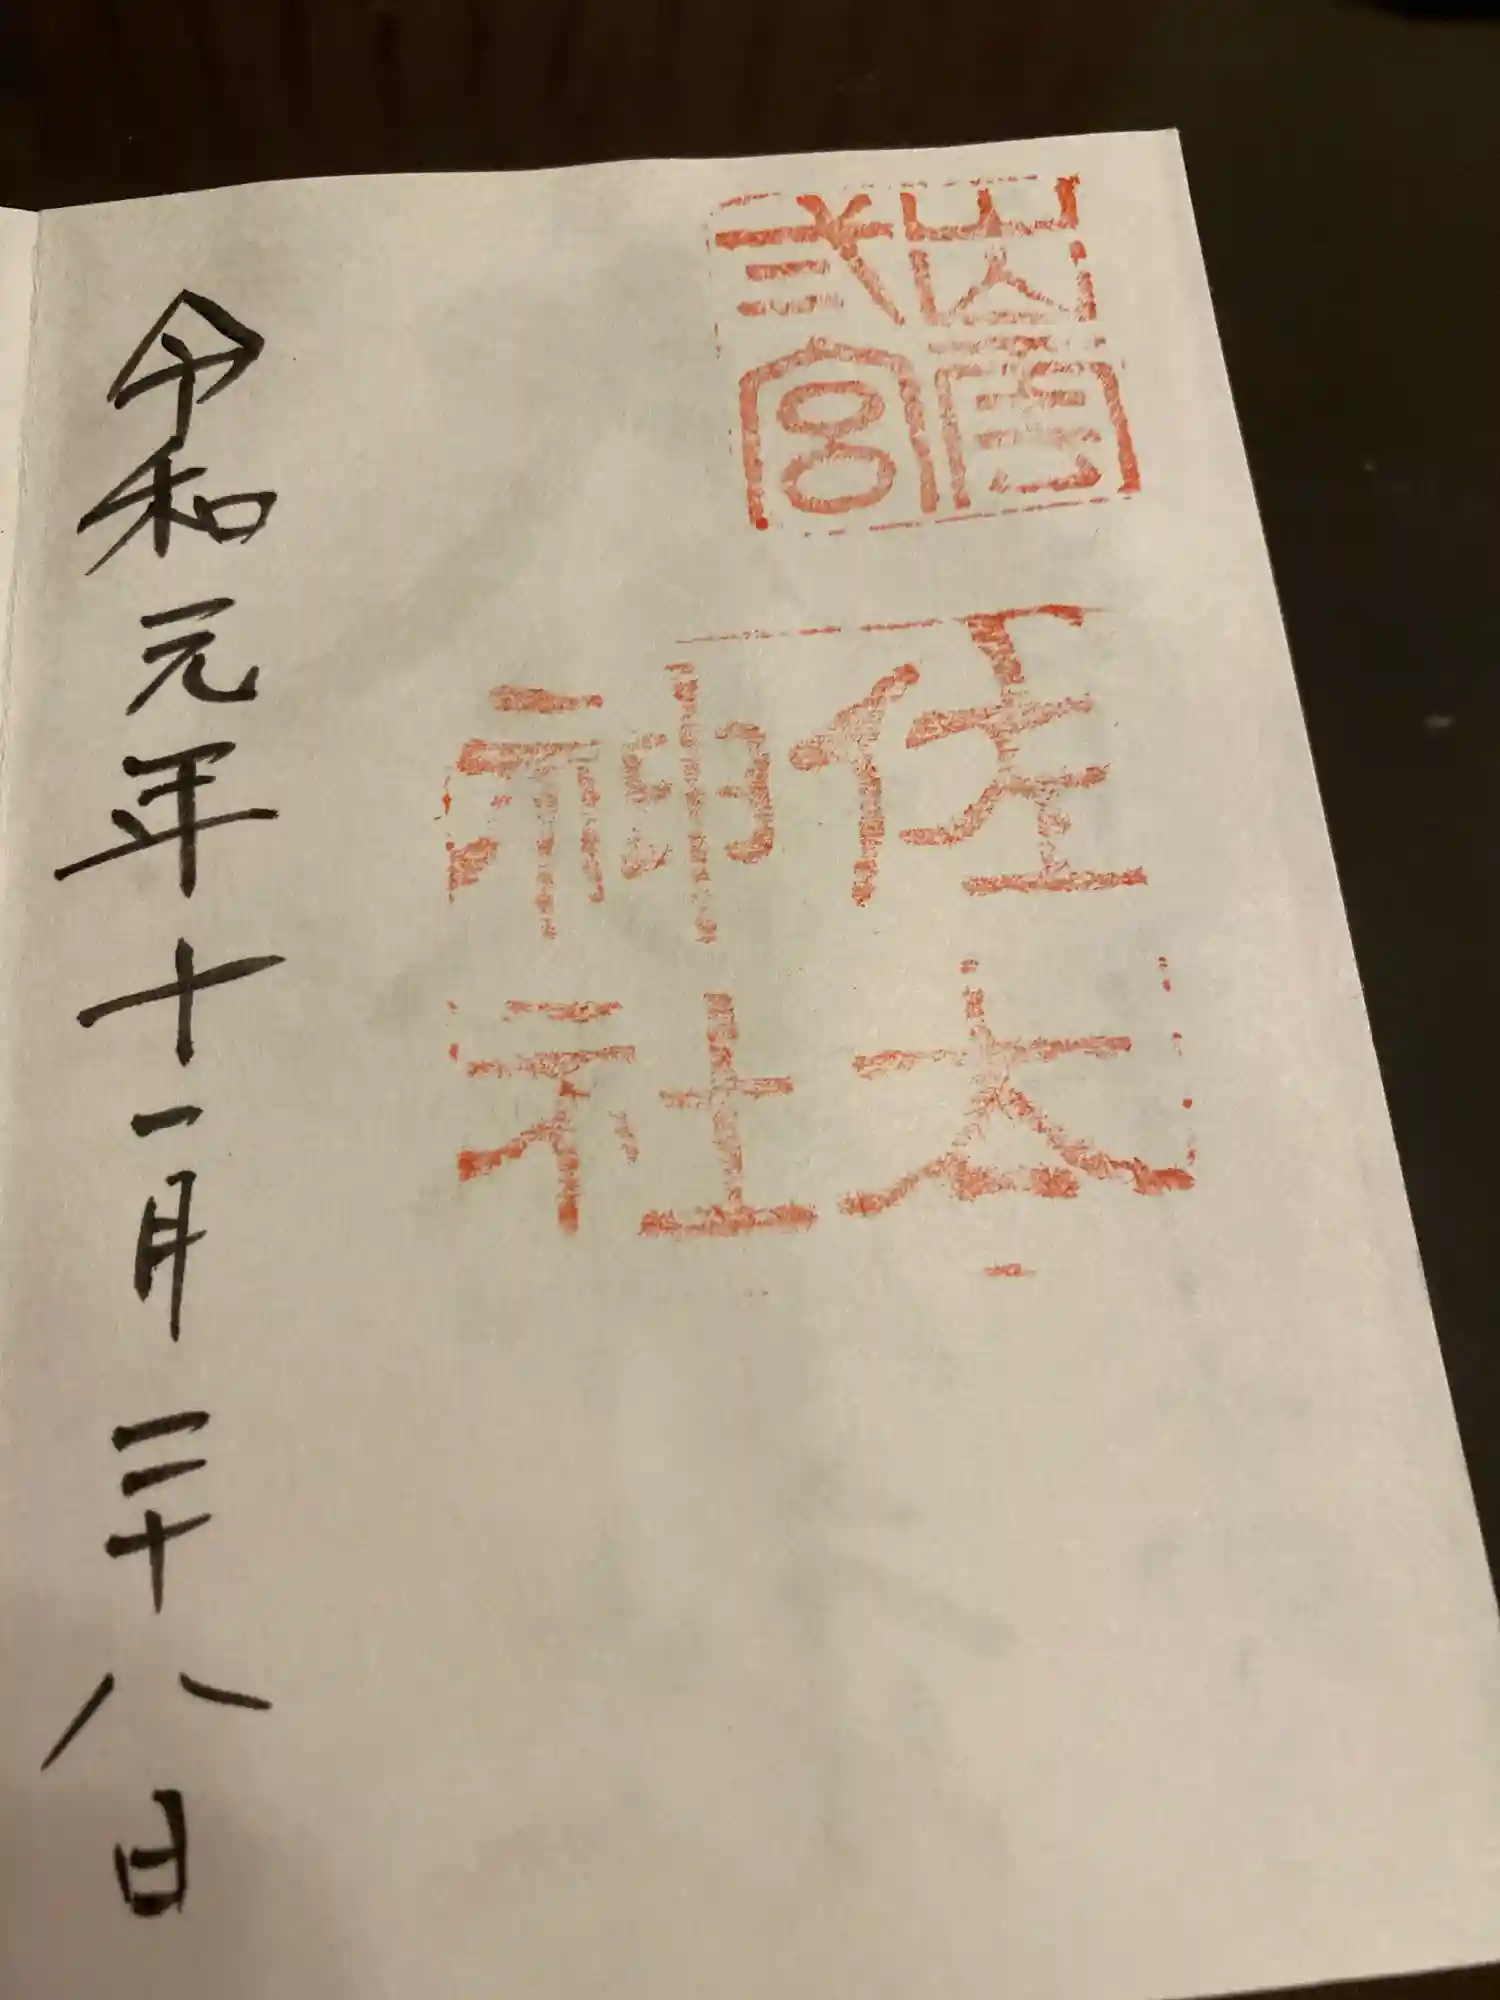 出雲
弐宮
佐太
神社
令和元年十一月二十八日